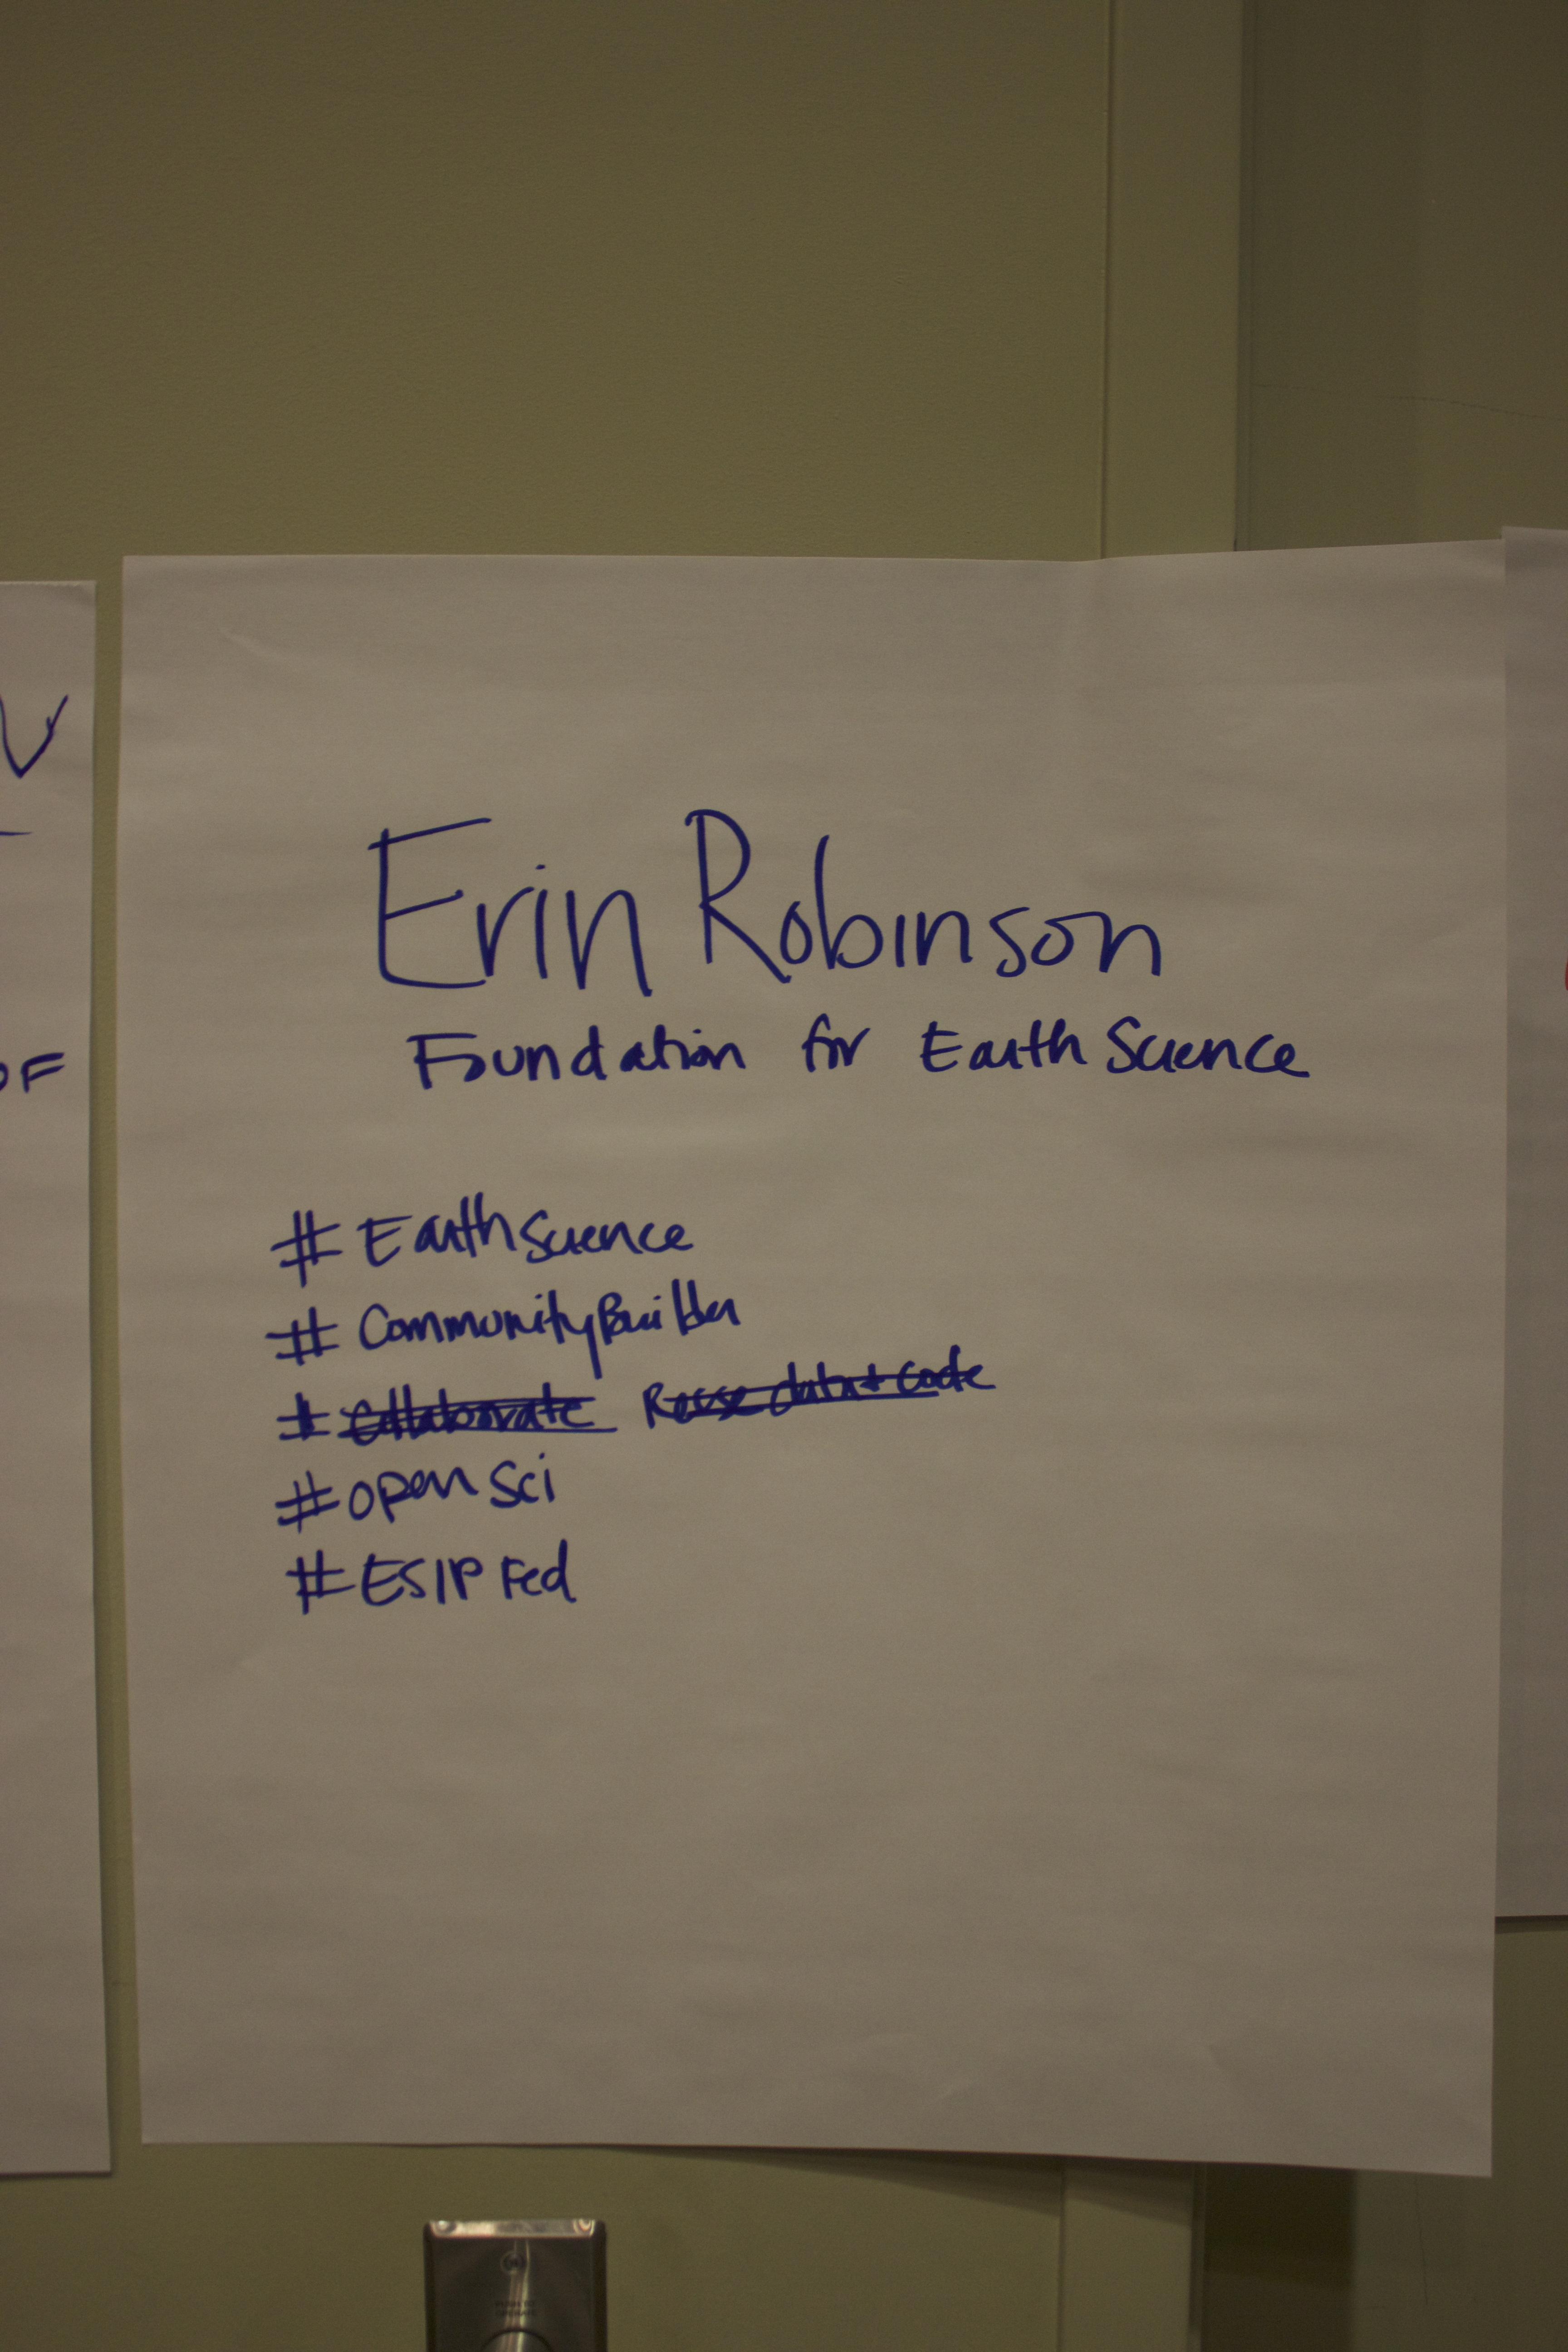 Erin Robinson
Foundation for Earth Science
#EarthScience
#CommunityBuilder
#Collaborate Reuse data + code
#open Sci
#ESIP Fed
OF